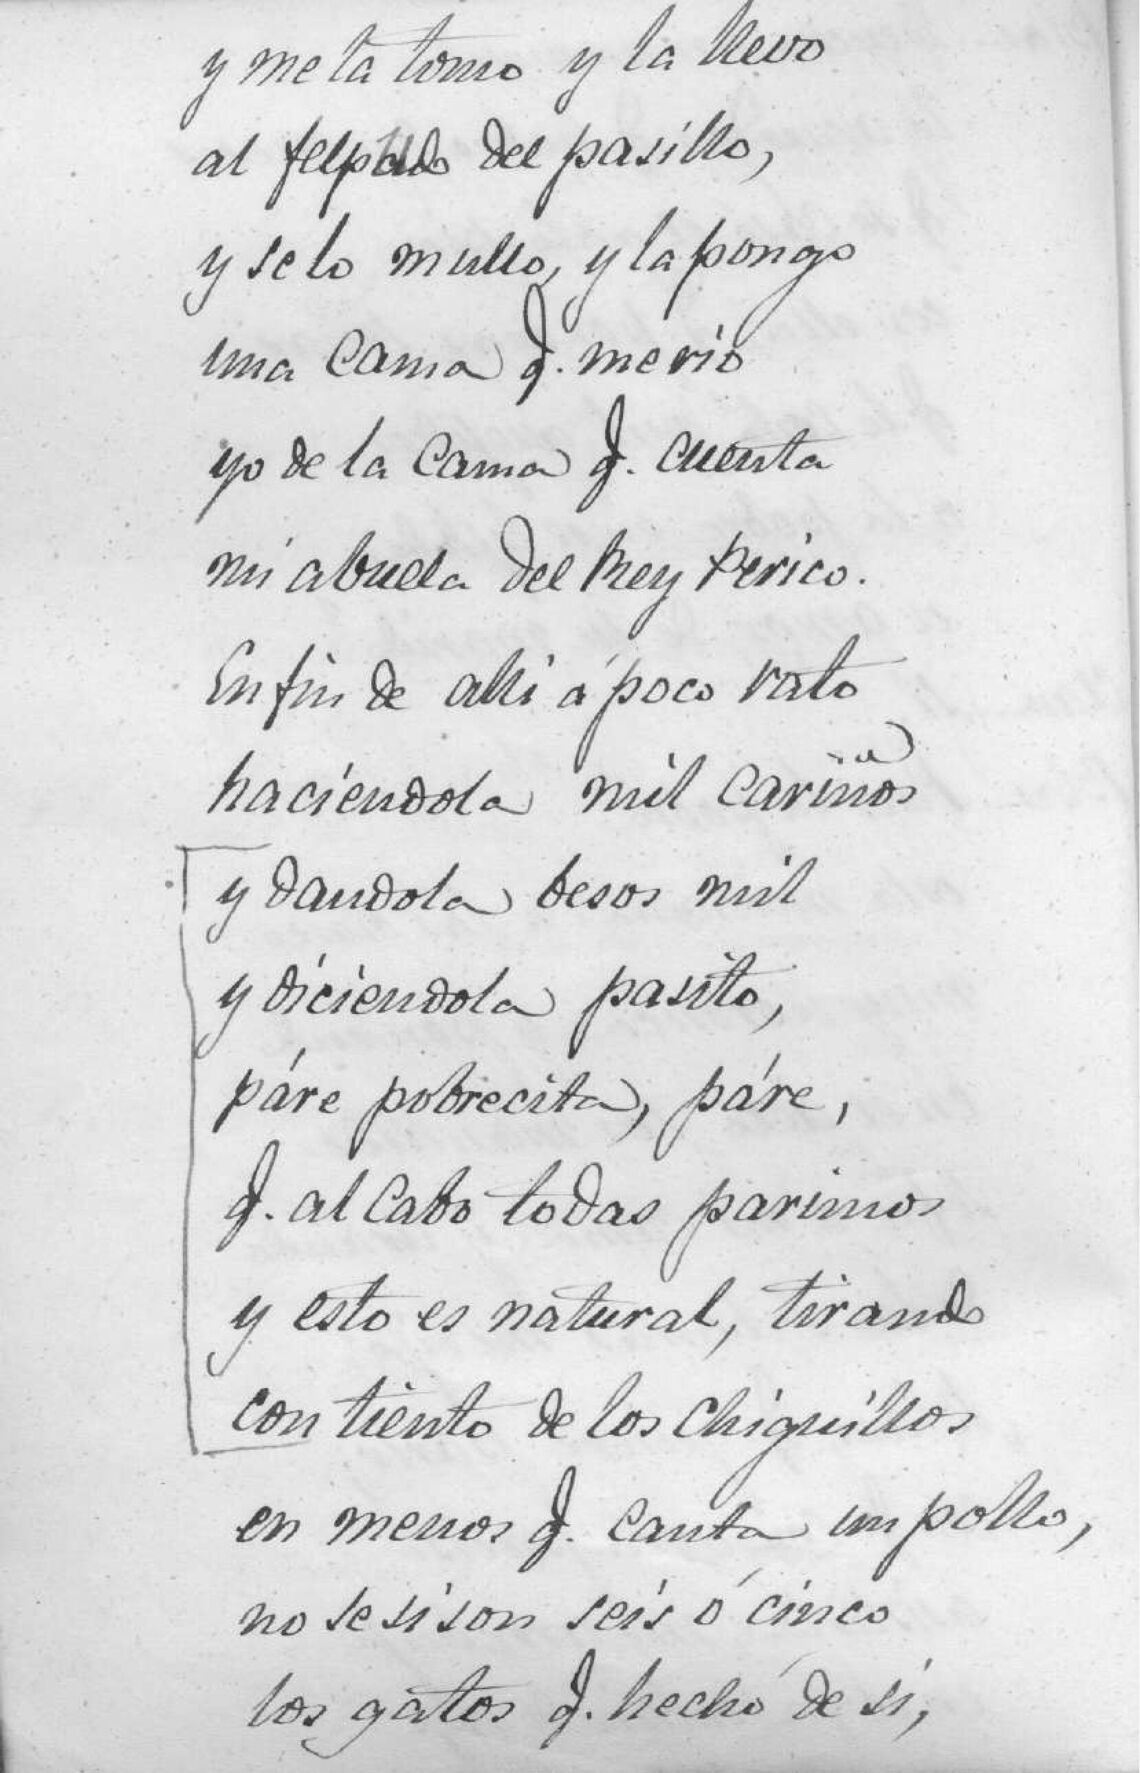 y me la tomo y la llevo
al felpudo del pasillo,
y se lo mullo, y la pongo
una cama q. me rio
yo de la cama q. cuenta
mi abuela del Rey Perico.
En fin de alli á poco rato
haciendola mil cariños
y dandola besos mil
y diciendola pasito,
páre pobrecita, páre,
q. al cabo todas parimos
y esto es natural, tirando
con tiento de los chiquillos
en menos q. canta un pollo,
no se si son seis ó cinco
los gatos q. hechó de sí,